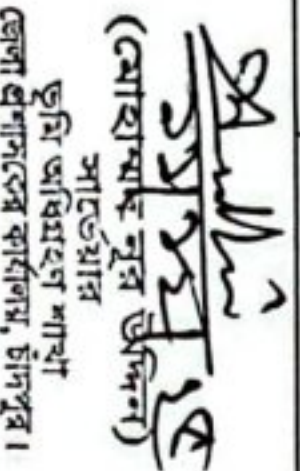 (মোহাম্মদ নূর উদ্দিন)
সার্ভেয়ার
ভূমি অধিগ্রহণ শাখা
জেলা প্রশাসকের কার্যালয়, চাঁদপুর।